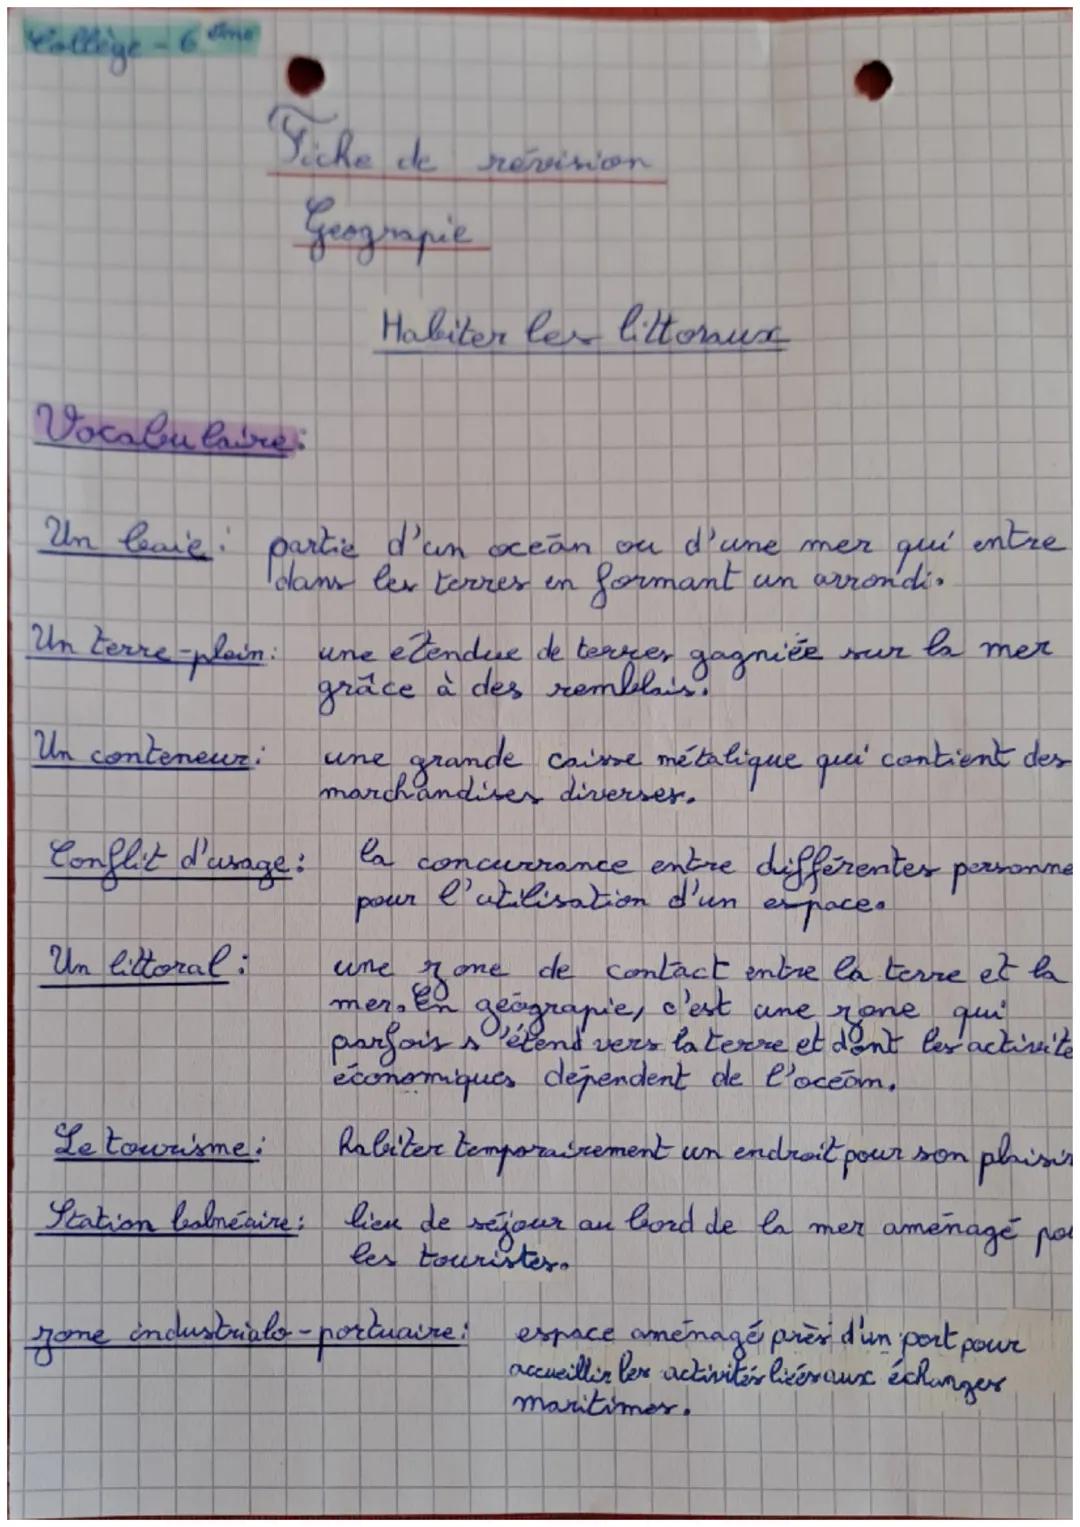 Collège - 6 ème
Fiche de révision
Geograpie
Habiter les littoraux
Vocabulaire:
Un baie: partie d'un océan ou d'une mer qui entre
dans les terres en formant un arrondi.
Un terre-plein: une étendue de terres gagniée sur la mer
grâce à des remblais.
Un conteneur: une grande caisse métalique qui contient des
marchandises diverses.
Conflit d'usage: la concurrance entre différentes personne
pour l'utilisation d'un espace.
Un littoral: une zone de contact entre la terre et la
mer. En géograpie, c'est une zone qui
parfois s'étend vers la terre et dont les activité
économiques dépendent de l'océan.
Le tourisme: habiter temporairement un endroit pour son plaisir
Station balnéaire: lieu de séjour au bord de la mer aménagé pou
les touristes.
zone industrialo-portuaire: espace aménagé près d'un port pour
accueillir les activités liés aux échanges
maritimes.